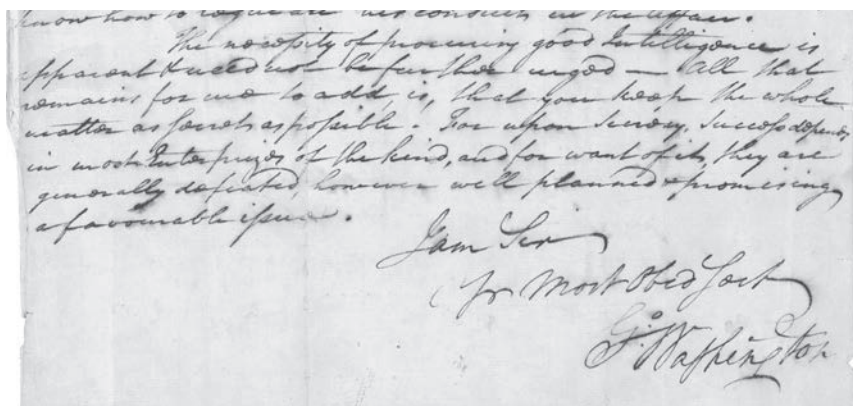 know how to regulate his conduct in the affair.
The necessity of procuring good Intelligence is
apparent & need not be further urged — All that
remains for me to add, is, that you keep the whole
matter as secret as possible. For upon Secrecy, Success depends
in most Enterprizes of the kind, and for want of it, they are
generally defeated, however well planned & promising
a favourable issue.
I am Sir
Yr Most Obed Sert
Go: Washington